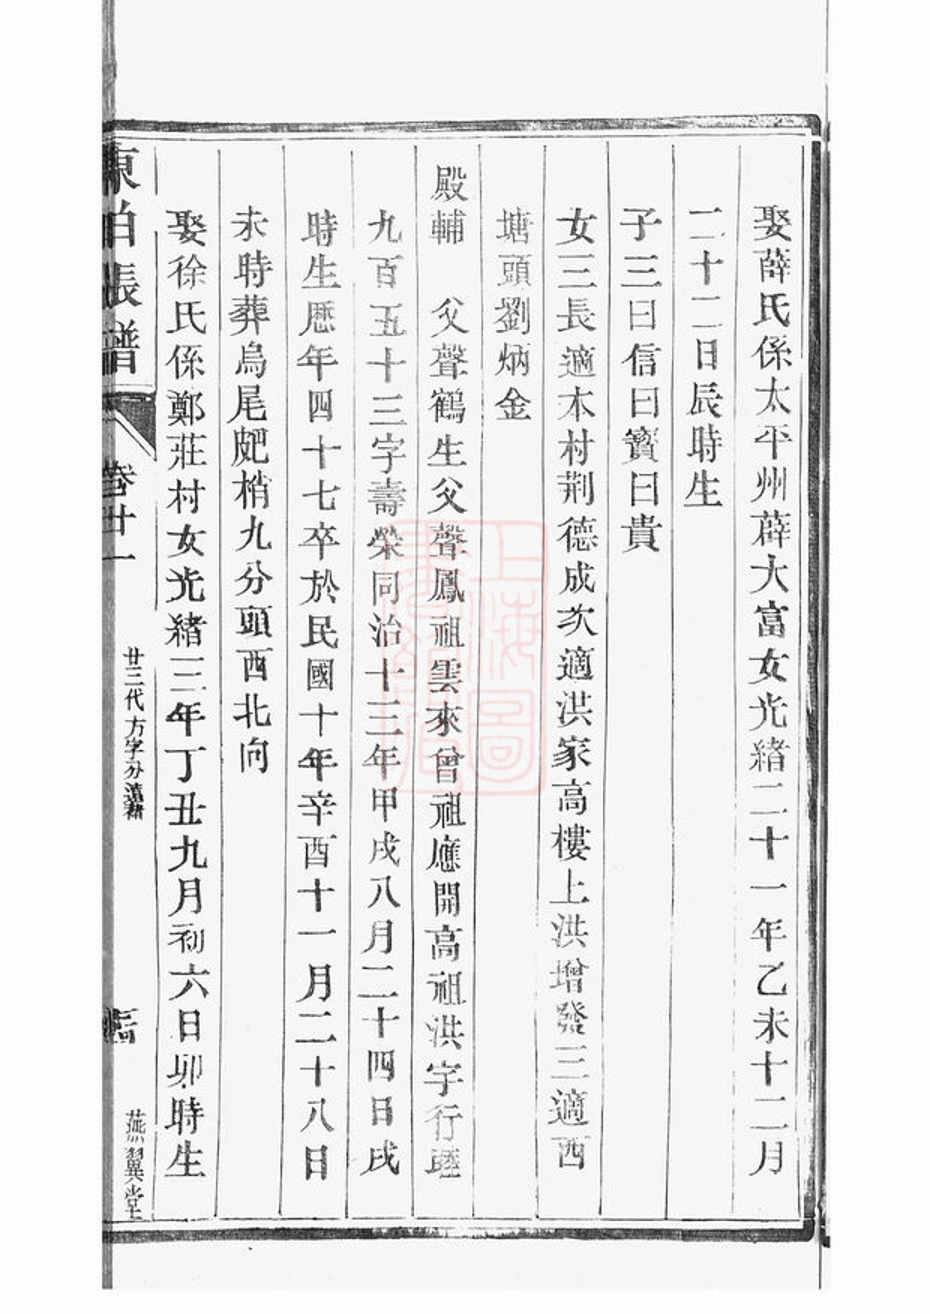 娶薛氏係太平州薜大富女光緒二十一年乙未十二月
二十二日辰時生
子三曰信曰寳曰貴
女三長適本村荆德成次適洪家高樓上洪增發三適西
塘頭劉炳金
殿輔　父聲鶴生父聲鳳祖雲來曾祖應開高祖洪字行睦
九百五十三字壽榮同治十三年甲戌八月二十四日戌
時生厯年四十七卒於民國十年辛酉十一月二十八日
未時葬烏尾䎬梢九分頭西北向
娶徐氏係鄭莊村女光緒三年丁丑九月初六日卯時生
張譜
卷廿一
廿三代方字分
燕翼堂
上海圖